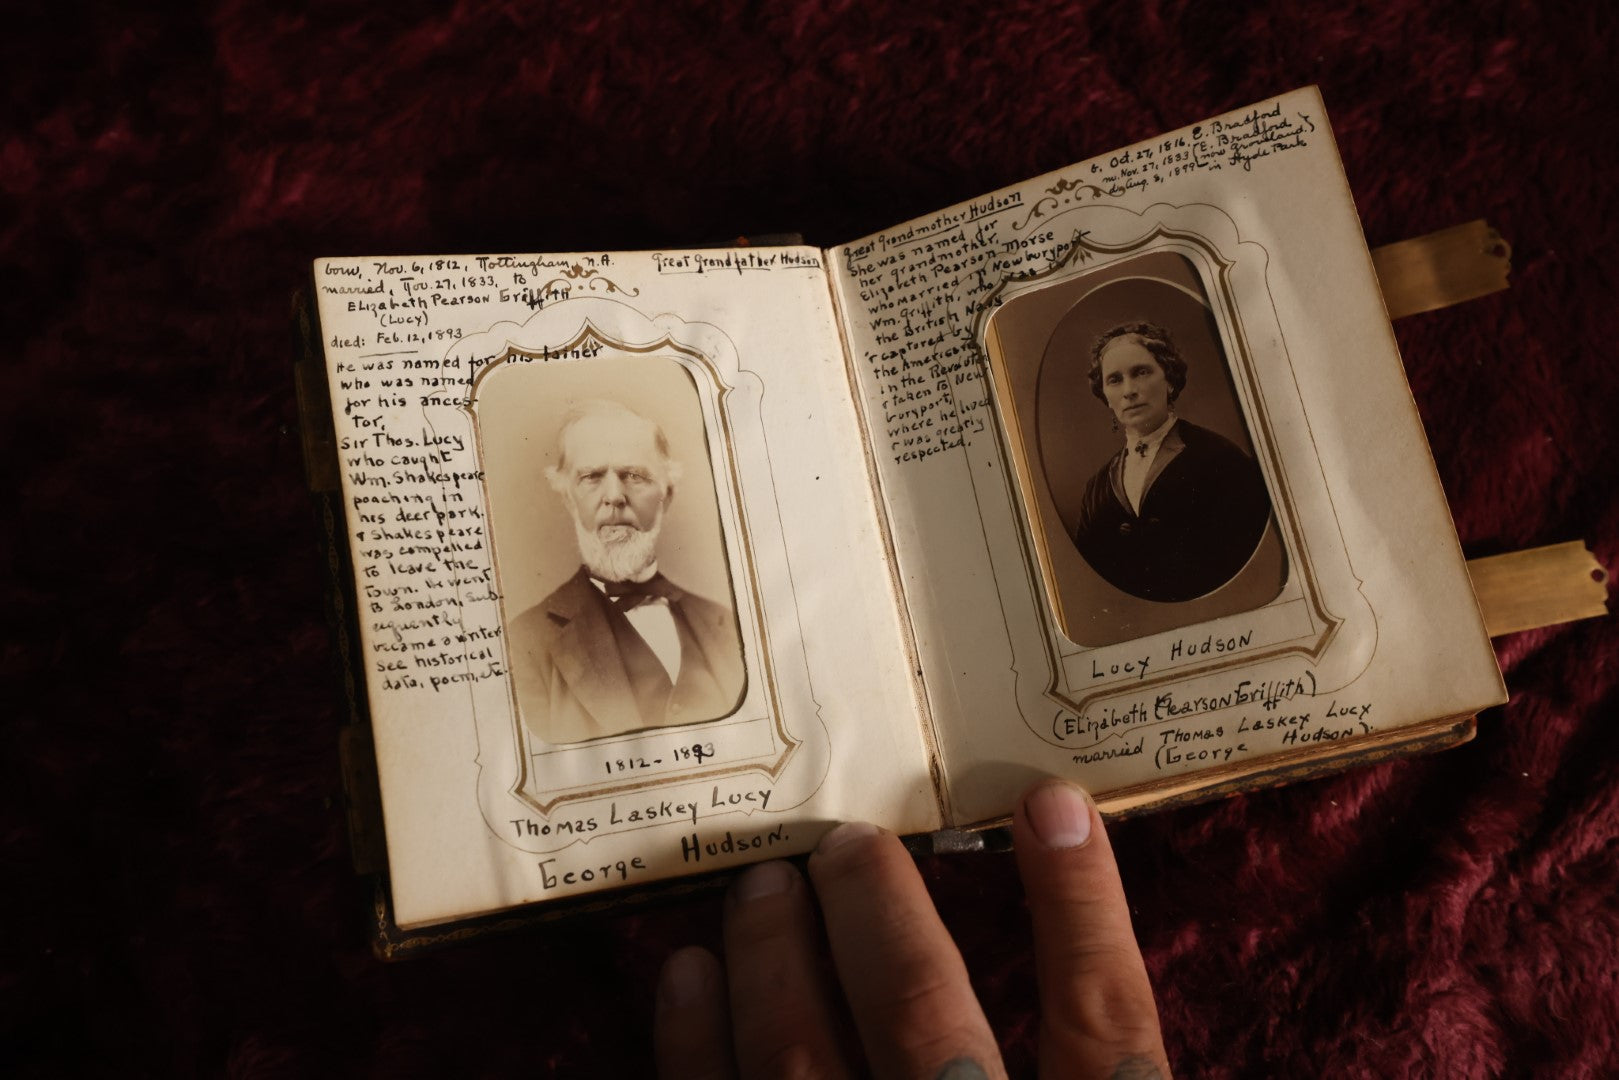 born, Nov. 6, 1812, Nottingham, N.H.
married, Nov. 27, 1833, to
Elizabeth Pearson Griffith
(Lucy)
died: Feb. 12, 1893
Great Grandfather Hudson
He was named for his father
who was named
for his ances-
tor,
Sir Thos. Lucy
who caught
Wm. Shakespeare
poaching in
his deer park.
& Shakespeare
was compelled
to leave the
town. He went
to London, sub-
equently
became a writer
see historical
data, poem, etc.
1812 - 1893
Thomas Laskey Lucy
George Hudson.
b. Oct. 27, 1816, E. Bradford
m. Nov. 27, 1833 (E. Bradford
now Groveland.)
d. Aug. 8, 1899 in Hyde Park
Great Grandmother Hudson
She was named for
her grandmother,
Elizabeth Pearson Morse
who married in Newburyport
Wm. Griffith, who was in
the British Navy
& captured by
the Americans
in the Revolution
& taken to New-
buryport,
where he lived
& was greatly
respected.
Lucy Hudson
(Elizabeth Pearson Griffith)
married Thomas Laskey Lucy
(George Hudson).